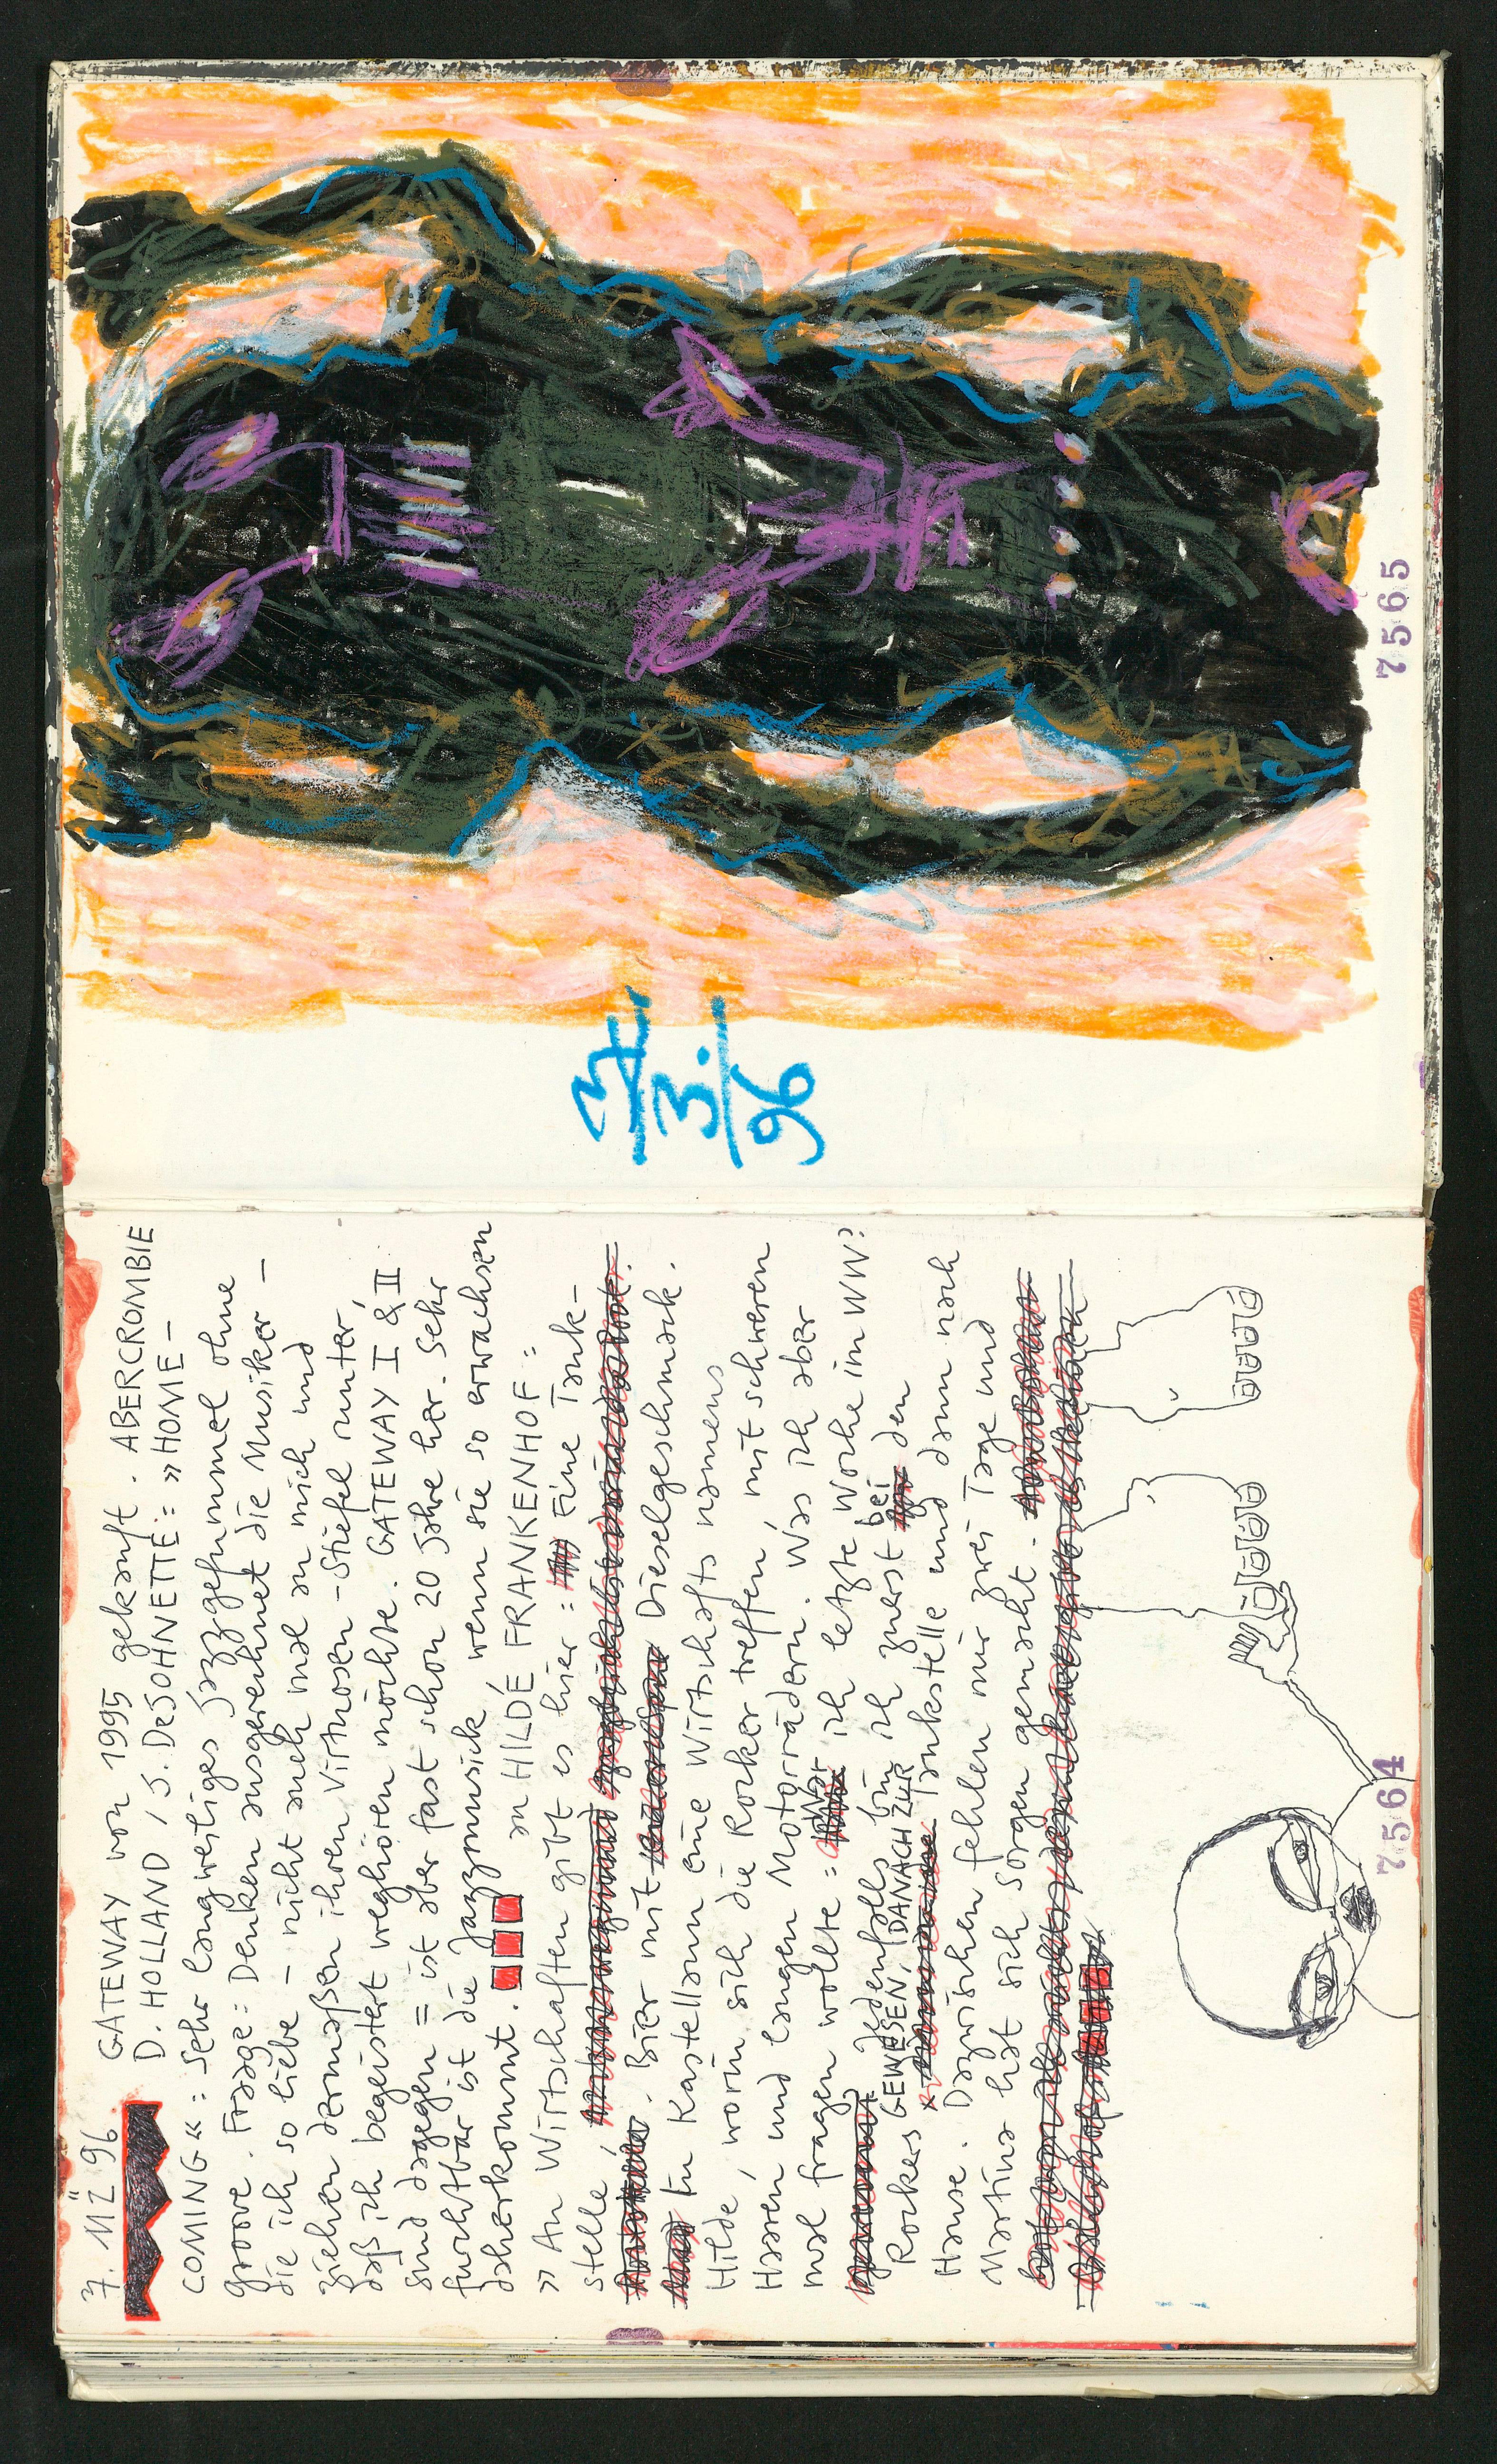 7. MZ̈ 96
GATEWAY von 1995 gekauft. ABERCROMBIE
D. HOLLAND, J. DeJOHNETTE: »HOME-
COMING«: Sehr langweiliges Jazzgefummel ohne
Groove. Frage: Denken ausgerechnet die Musiker –
die ich so liebe – nicht auch mal an mich und
ziehen dermaßen ihren Virtuosen-Stiefel runter,
daß ich begeistert weghören möchte. GATEWAY I & II
sind dagegen = ist aber fast schon 20 Jahre her. Sehr
furchtbar ist die Jazzmusick, wenn sie so erwachsen
daherkommt. an HILDE FRANKENHOF:
» An Wirtschaften gibt es hier: Eine Tank-
stelle,
. Bier mit Dieselgeschmack.
Im Kastellaun eine Wirtschaft namens
Hilde, worin sich die Rocker treffen, mit schweren
Haaren und langen Motorrädern. Was ich aber
mal fragen wollte: War ich letzte Woche im WW?
Jedenfalls bin ich zuerst bei den
Rockers GEWESEN, DANACH ZUR Tankstelle und dann nach
Hause. Dazwischen fehlen mir zwei Tage und
Martina hat sich Sorgen gemacht.
7564
7/3./96
7565